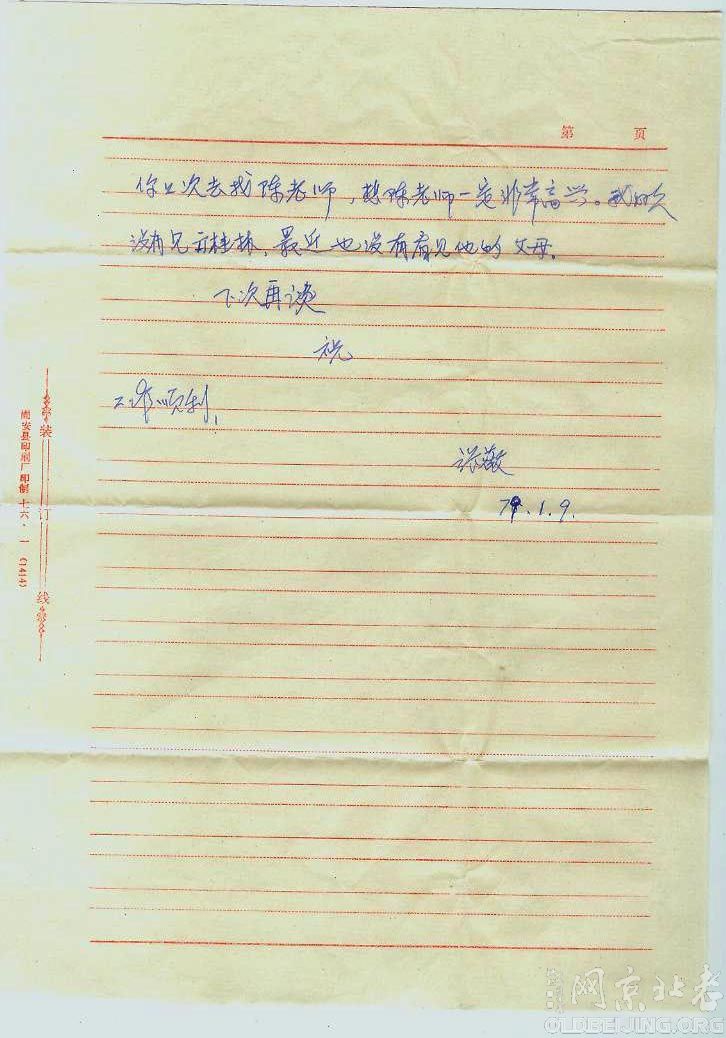 第 页
你上次去找陈老师，想陈老师一定非常高兴。我好久
没有见 桂林，最近也没有看见他的父母。
下次再谈
祝
工作顺利，
张
79.1.9.
装 订 线
固安县印刷厂印制 十六·一 (1414)
网京北老
OLDBEIJING.ORG